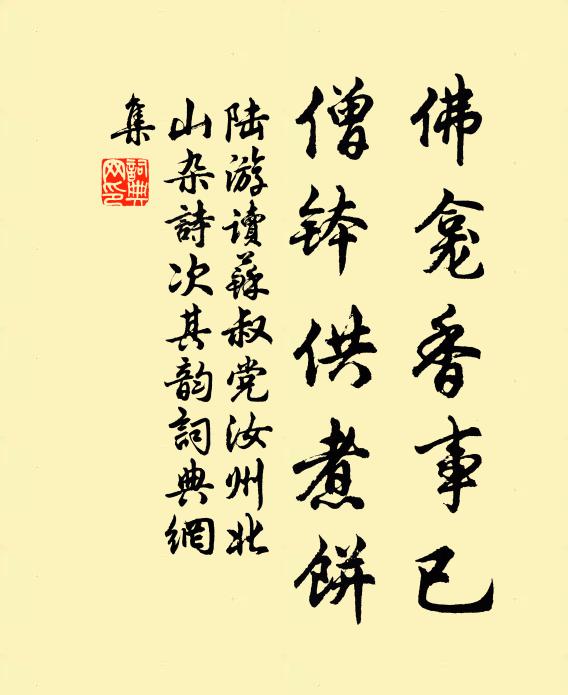 佛龛香事已
僧钵供煮餅
陆游读蘇叔党汝州北
山杂詩次其韵詞典網
集
詞典
网印